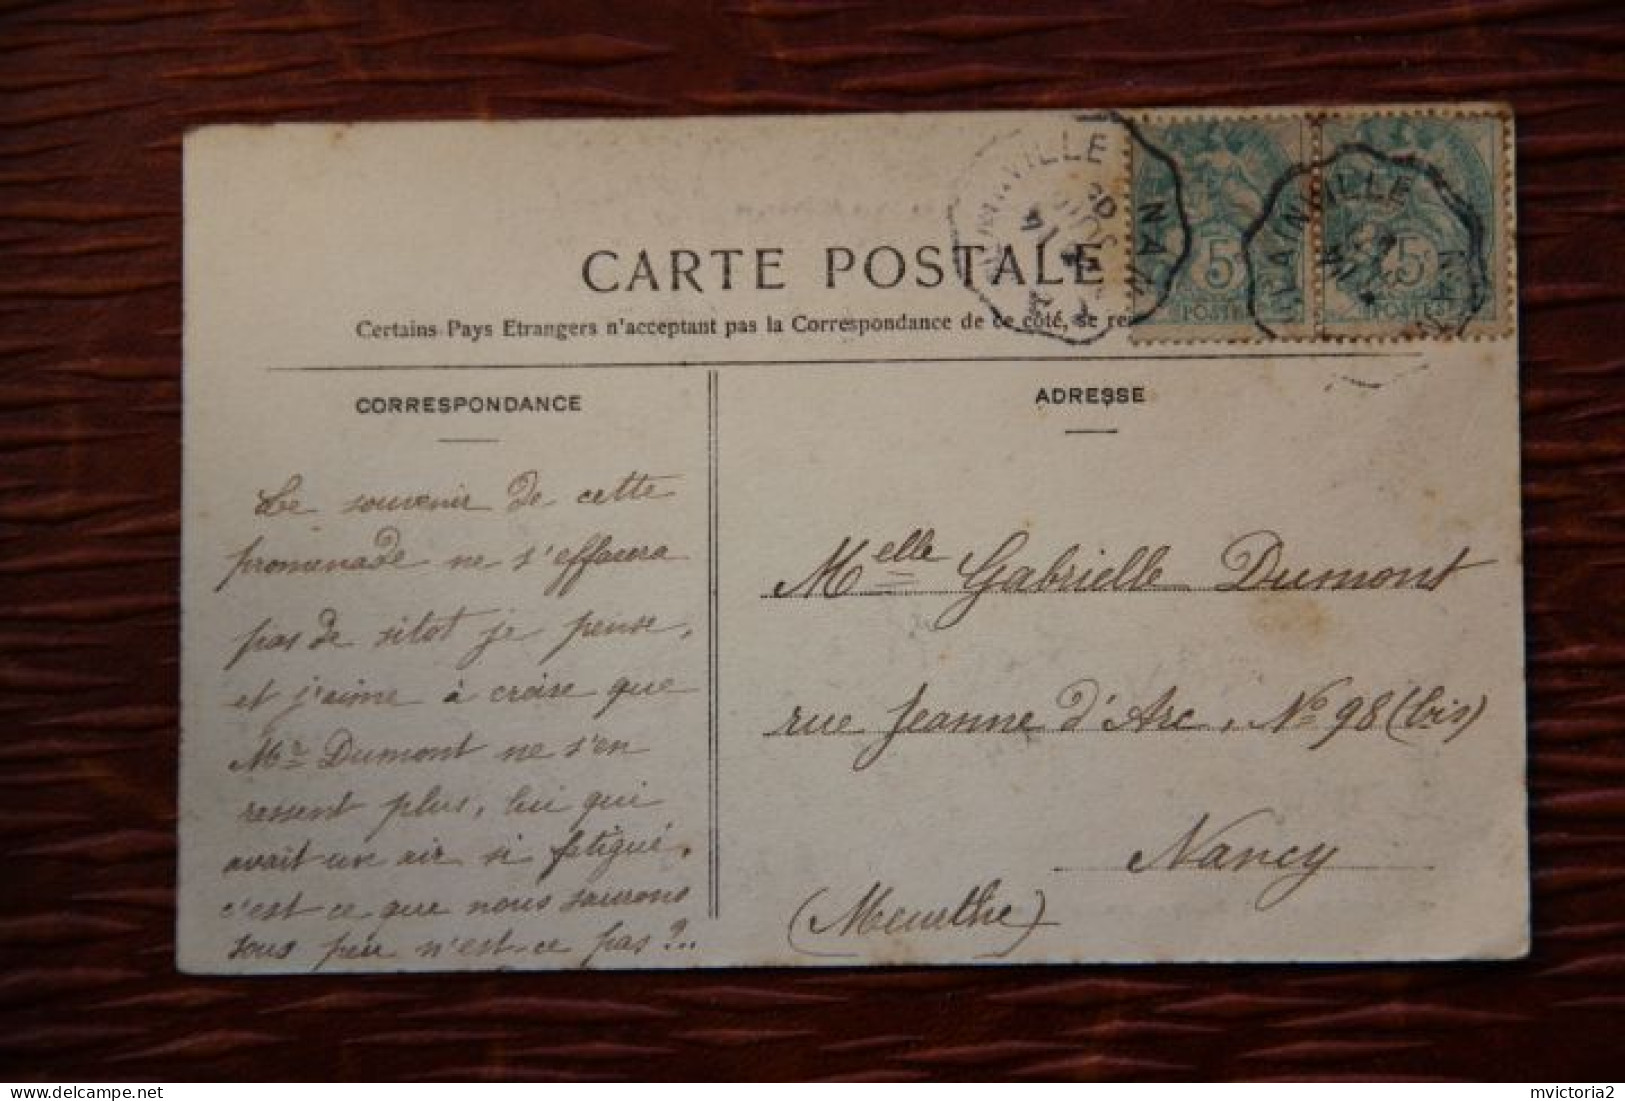 CARTE POSTALE
Certains Pays Etrangers n'acceptant pas la Correspondance de ce côté, se re
5 5
POSTES POSTES
CORRESPONDANCE
Le souvenir de cette
promenade ne s'effacera
pas de sitot je pense,
et j'aime à croire que
Mr Dumont ne s'en
ressent plus, lui qui
avait un air si fatigué,
c'est ce que nous saurons
sous peu n'est-ce pas?..
ADRESSE
Melle Gabrielle Dumont
rue Jeanne d'Arc, No 98 (bis)
Nancy
(Meurthe)
mvictoria2